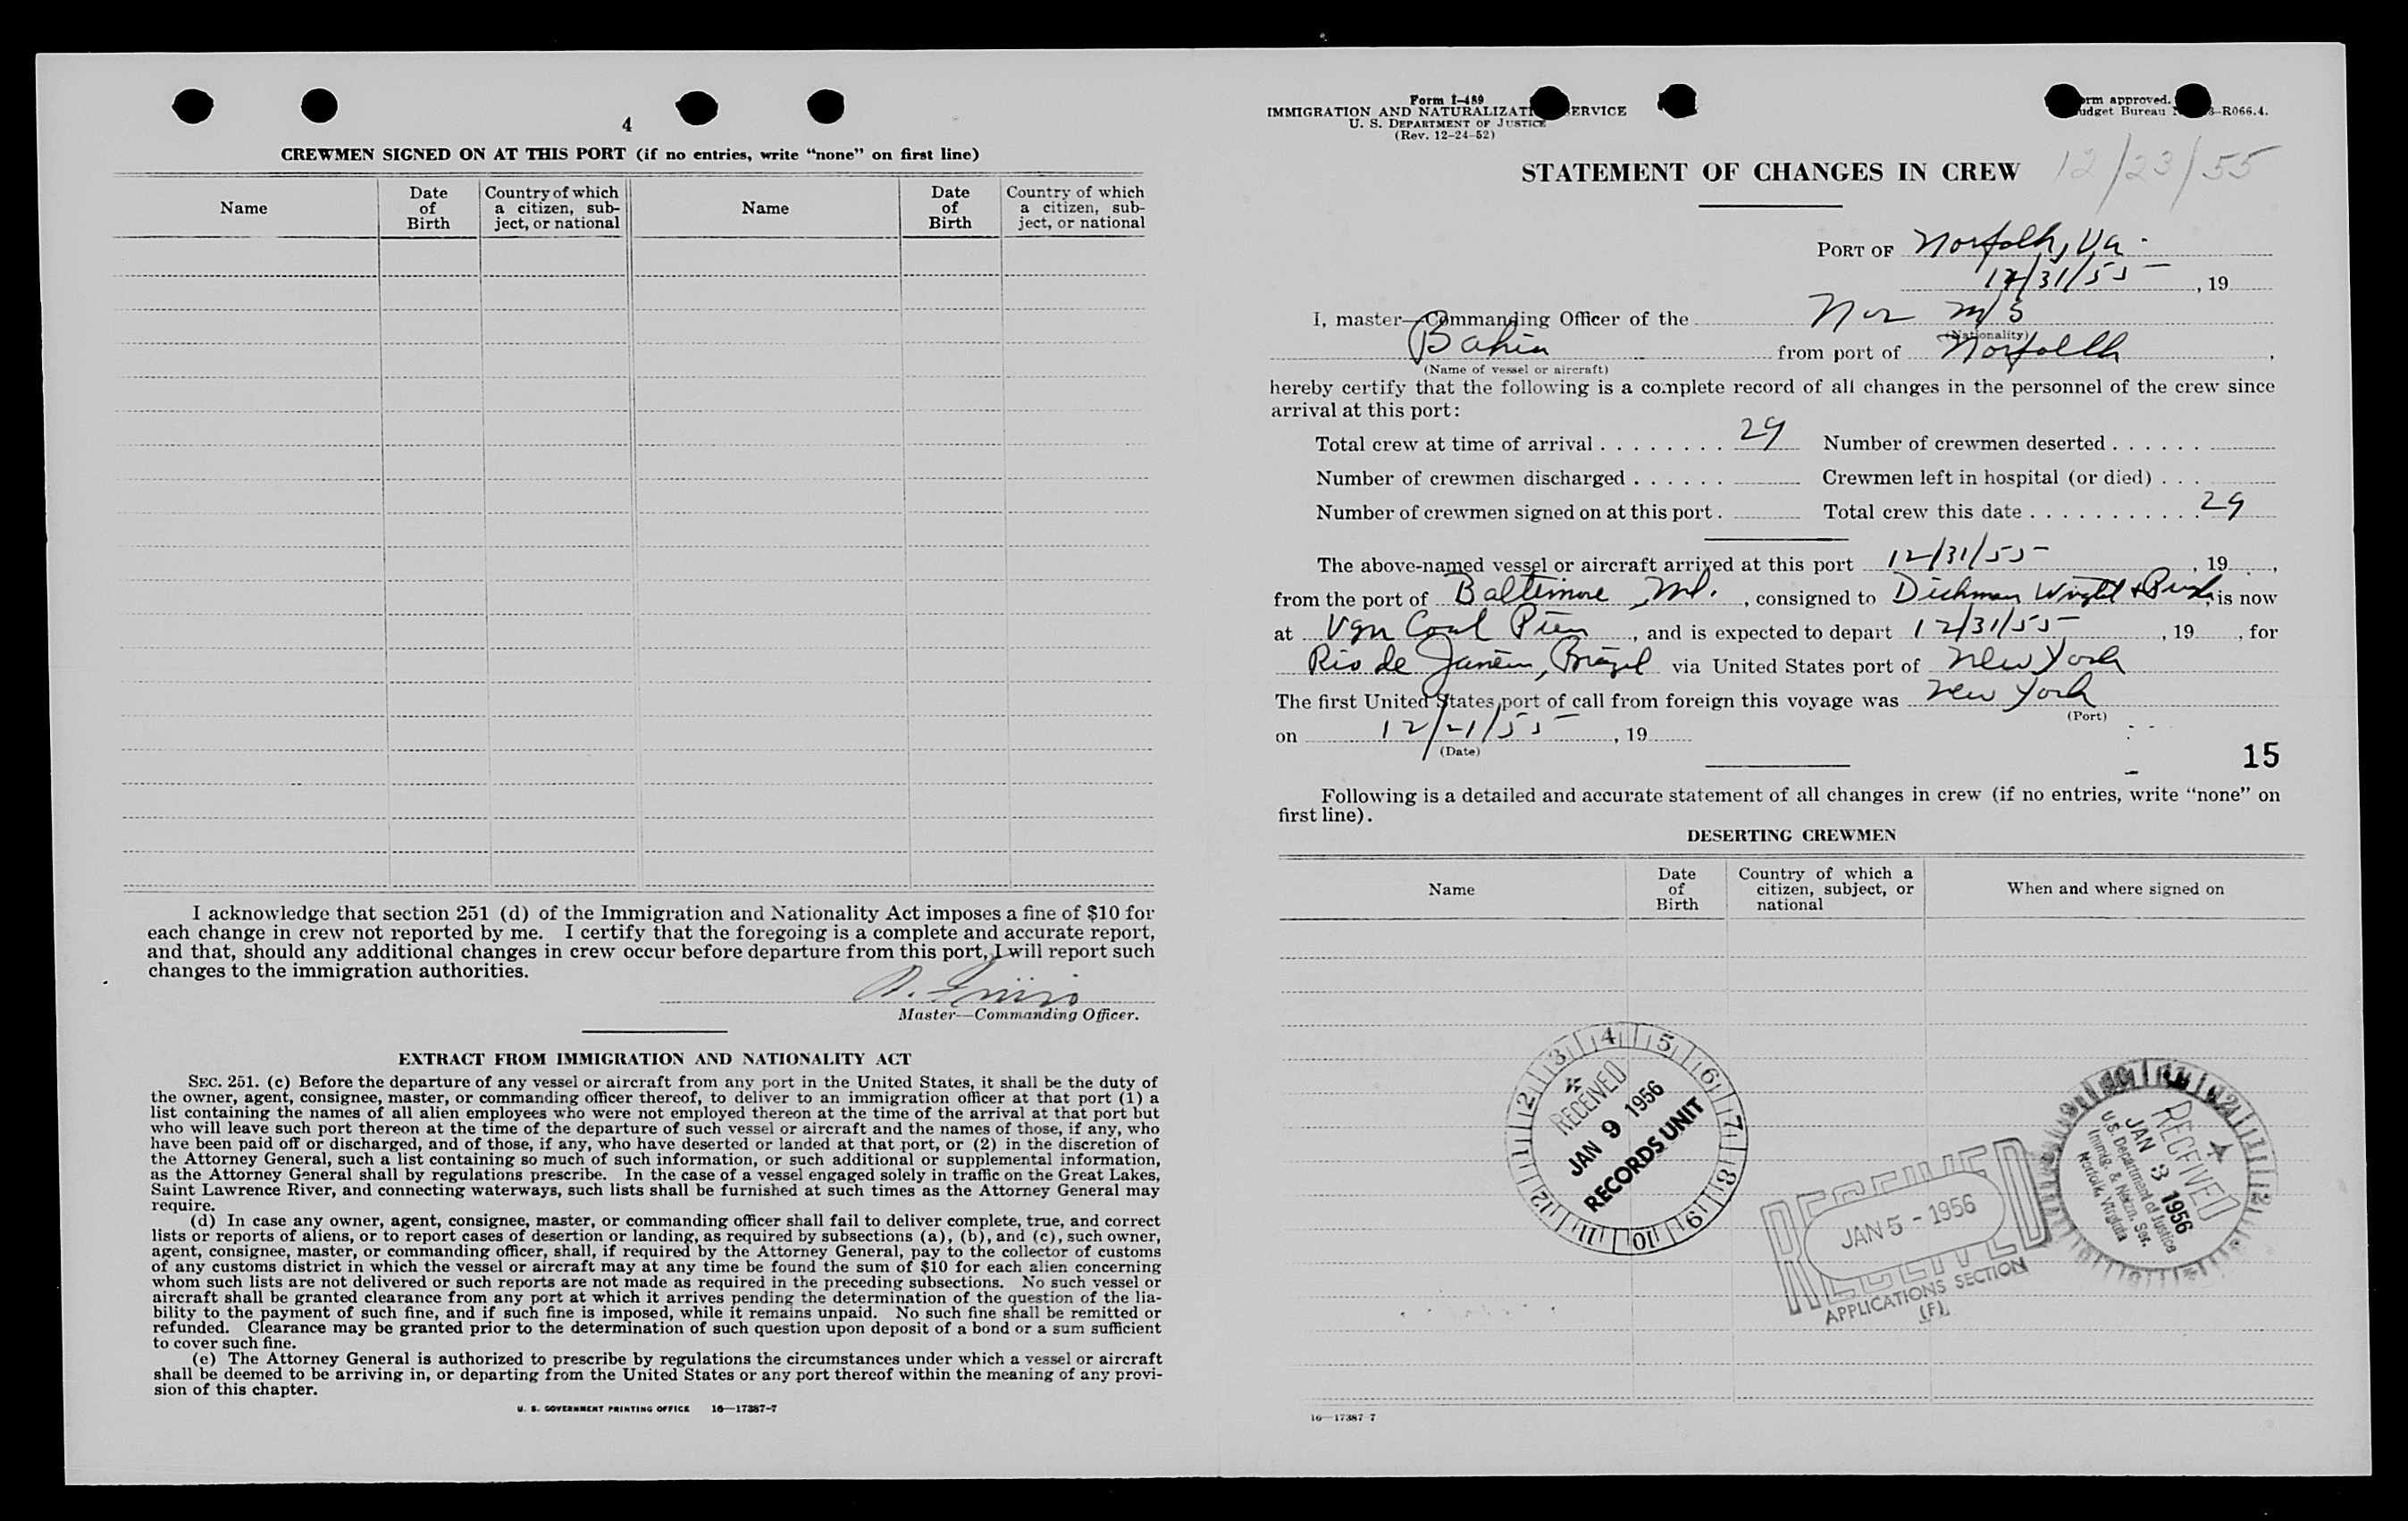 4
CREWMEN SIGNED ON AT THIS PORT (if no entries, write “none” on first line)
Name
Date of Birth
Country of which a citizen, subject, or national
Name
Date of Birth
Country of which a citizen, subject, or national
I acknowledge that section 251 (d) of the Immigration and Nationality Act imposes a fine of $10 for
each change in crew not reported by me. I certify that the foregoing is a complete and accurate report,
and that, should any additional changes in crew occur before departure from this port, I will report such
changes to the immigration authorities.
Master—Commanding Officer.
EXTRACT FROM IMMIGRATION AND NATIONALITY ACT
SEC. 251. (c) Before the departure of any vessel or aircraft from any port in the United States, it shall be the duty of
the owner, agent, consignee, master, or commanding officer thereof, to deliver to an immigration officer at that port (1) a
list containing the names of all alien employees who were not employed thereon at the time of the arrival at that port but
who will leave such port thereon at the time of the departure of such vessel or aircraft and the names of those, if any, who
have been paid off or discharged, and of those, if any, who have deserted or landed at that port, or (2) in the discretion of
the Attorney General, such a list containing so much of such information, or such additional or supplemental information,
as the Attorney General shall by regulations prescribe. In the case of a vessel engaged solely in traffic on the Great Lakes,
Saint Lawrence River, and connecting waterways, such lists shall be furnished at such times as the Attorney General may
require.
(d) In case any owner, agent, consignee, master, or commanding officer shall fail to deliver complete, true, and correct
lists or reports of aliens, or to report cases of desertion or landing, as required by subsections (a), (b), and (c), such owner,
agent, consignee, master, or commanding officer, shall, if required by the Attorney General, pay to the collector of customs
of any customs district in which the vessel or aircraft may at any time be found the sum of $10 for each alien concerning
whom such lists are not delivered or such reports are not made as required in the preceding subsections. No such vessel or
aircraft shall be granted clearance from any port at which it arrives pending the determination of the question of the lia-
bility to the payment of such fine, and if such fine is imposed, while it remains unpaid. No such fine shall be remitted or
refunded. Clearance may be granted prior to the determination of such question upon deposit of a bond or a sum sufficient
to cover such fine.
(e) The Attorney General is authorized to prescribe by regulations the circumstances under which a vessel or aircraft
shall be deemed to be arriving in, or departing from the United States or any port thereof within the meaning of any provi-
sion of this chapter.
U. S. GOVERNMENT PRINTING OFFICE 16—17387-7
Form I-489
IMMIGRATION AND NATURALIZATI ERVICE
U. S. DEPARTMENT OF JUSTICE
(Rev. 12-24-52)
rm approved.
udget Bureau -R066.4.
STATEMENT OF CHANGES IN CREW 12/23/55
PORT OF Norfolk, Va.
12/31/55, 19
I, master—Commanding Officer of the Nor M/S
(Nationality)
Bahia from port of Norfolk,
(Name of vessel or aircraft)
hereby certify that the following is a complete record of all changes in the personnel of the crew since
arrival at this port:
Total crew at time of arrival 29 Number of crewmen deserted
Number of crewmen discharged Crewmen left in hospital (or died)
Number of crewmen signed on at this port. Total crew this date 29
The above-named vessel or aircraft arrived at this port 12/31/55, 19,
from the port of Baltimore, Md., consigned to Dichman Wright & Pugh, is now
at Vgn Coal Pier, and is expected to depart 12/31/55, 19, for
Rio de Janeiro, Brazil via United States port of New York
The first United States port of call from foreign this voyage was New York
(Port)
on 12/21/55, 19
(Date)
15
Following is a detailed and accurate statement of all changes in crew (if no entries, write “none” on
first line).
DESERTING CREWMEN
Name
Date of Birth
Country of which a citizen, subject, or national
When and where signed on
1 2 3 4 5 6 7 8 9 10 11 12
RECEIVED
JAN 9 1956
RECORDS UNIT
RECEIVED
JAN 5 - 1956
APPLICATIONS SECTION
(F)
RECEIVED
JAN 3 1956
U.S. Department of Justice
Immig. & Natzn. Ser.
Norfolk, Virginia
16—17387-7